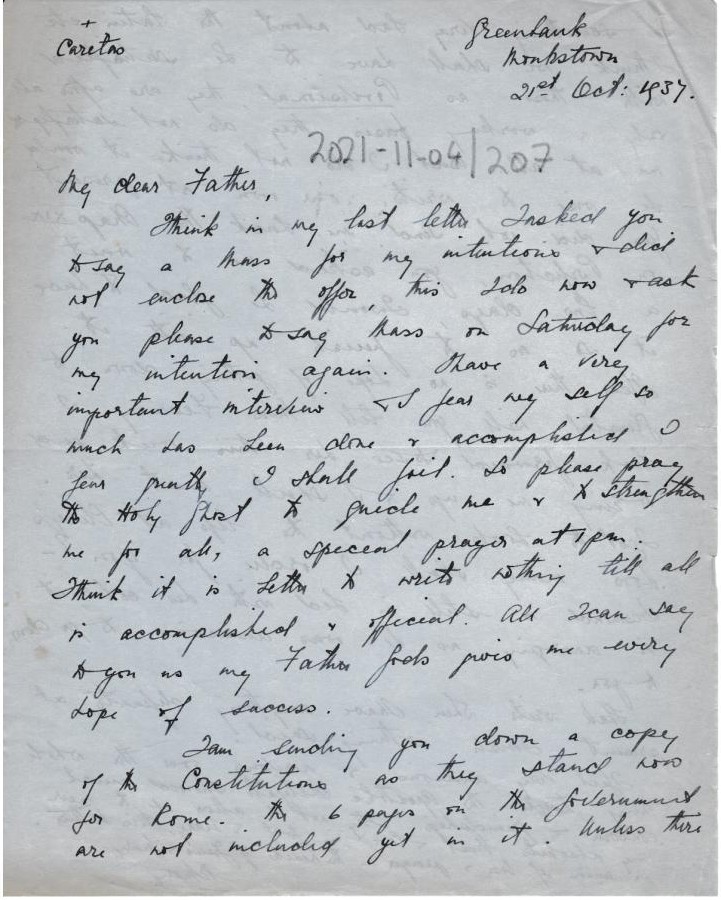 +
Caritas
Greenbank
Monkstown
21st Oct: 1937.
2021-11-04/207
My dear Father,
I think in my last letter I asked you
to say a Mass for my intentions & did
not enclose the offer, this I do now & ask
you please to say Mass on Saturday for
my intention again. I have a very
important interview & I fear my self so
much has been done & accomplished I
fear greatly I shall fail. So please pray
the Holy Ghost to guide me & to strengthen
me for all, a special prayer at 1 pm.
I think it is better to write nothing till all
is accomplished & official. All I can say
to you as my Father God's give me every
hope of success.
I am sending you down a copy
of the Constitutions as they stand now
for Rome. The 6 pages on the Government
are not included yet in it. Unless there